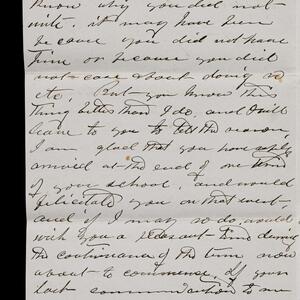 know why you did not
write. it may have been
because you did not have
time or because you did
not care about doing so
etc. But you know this
thing better than I do, and I will
leave to you to tell the reason,
I am glad that you have safely
arrived at the end of one third
of your school, and would
felicitate you on that event,
and if I may so do, would
wish you a pleasant time during
the continuance of the term now
about to commence, If your
last communication to me